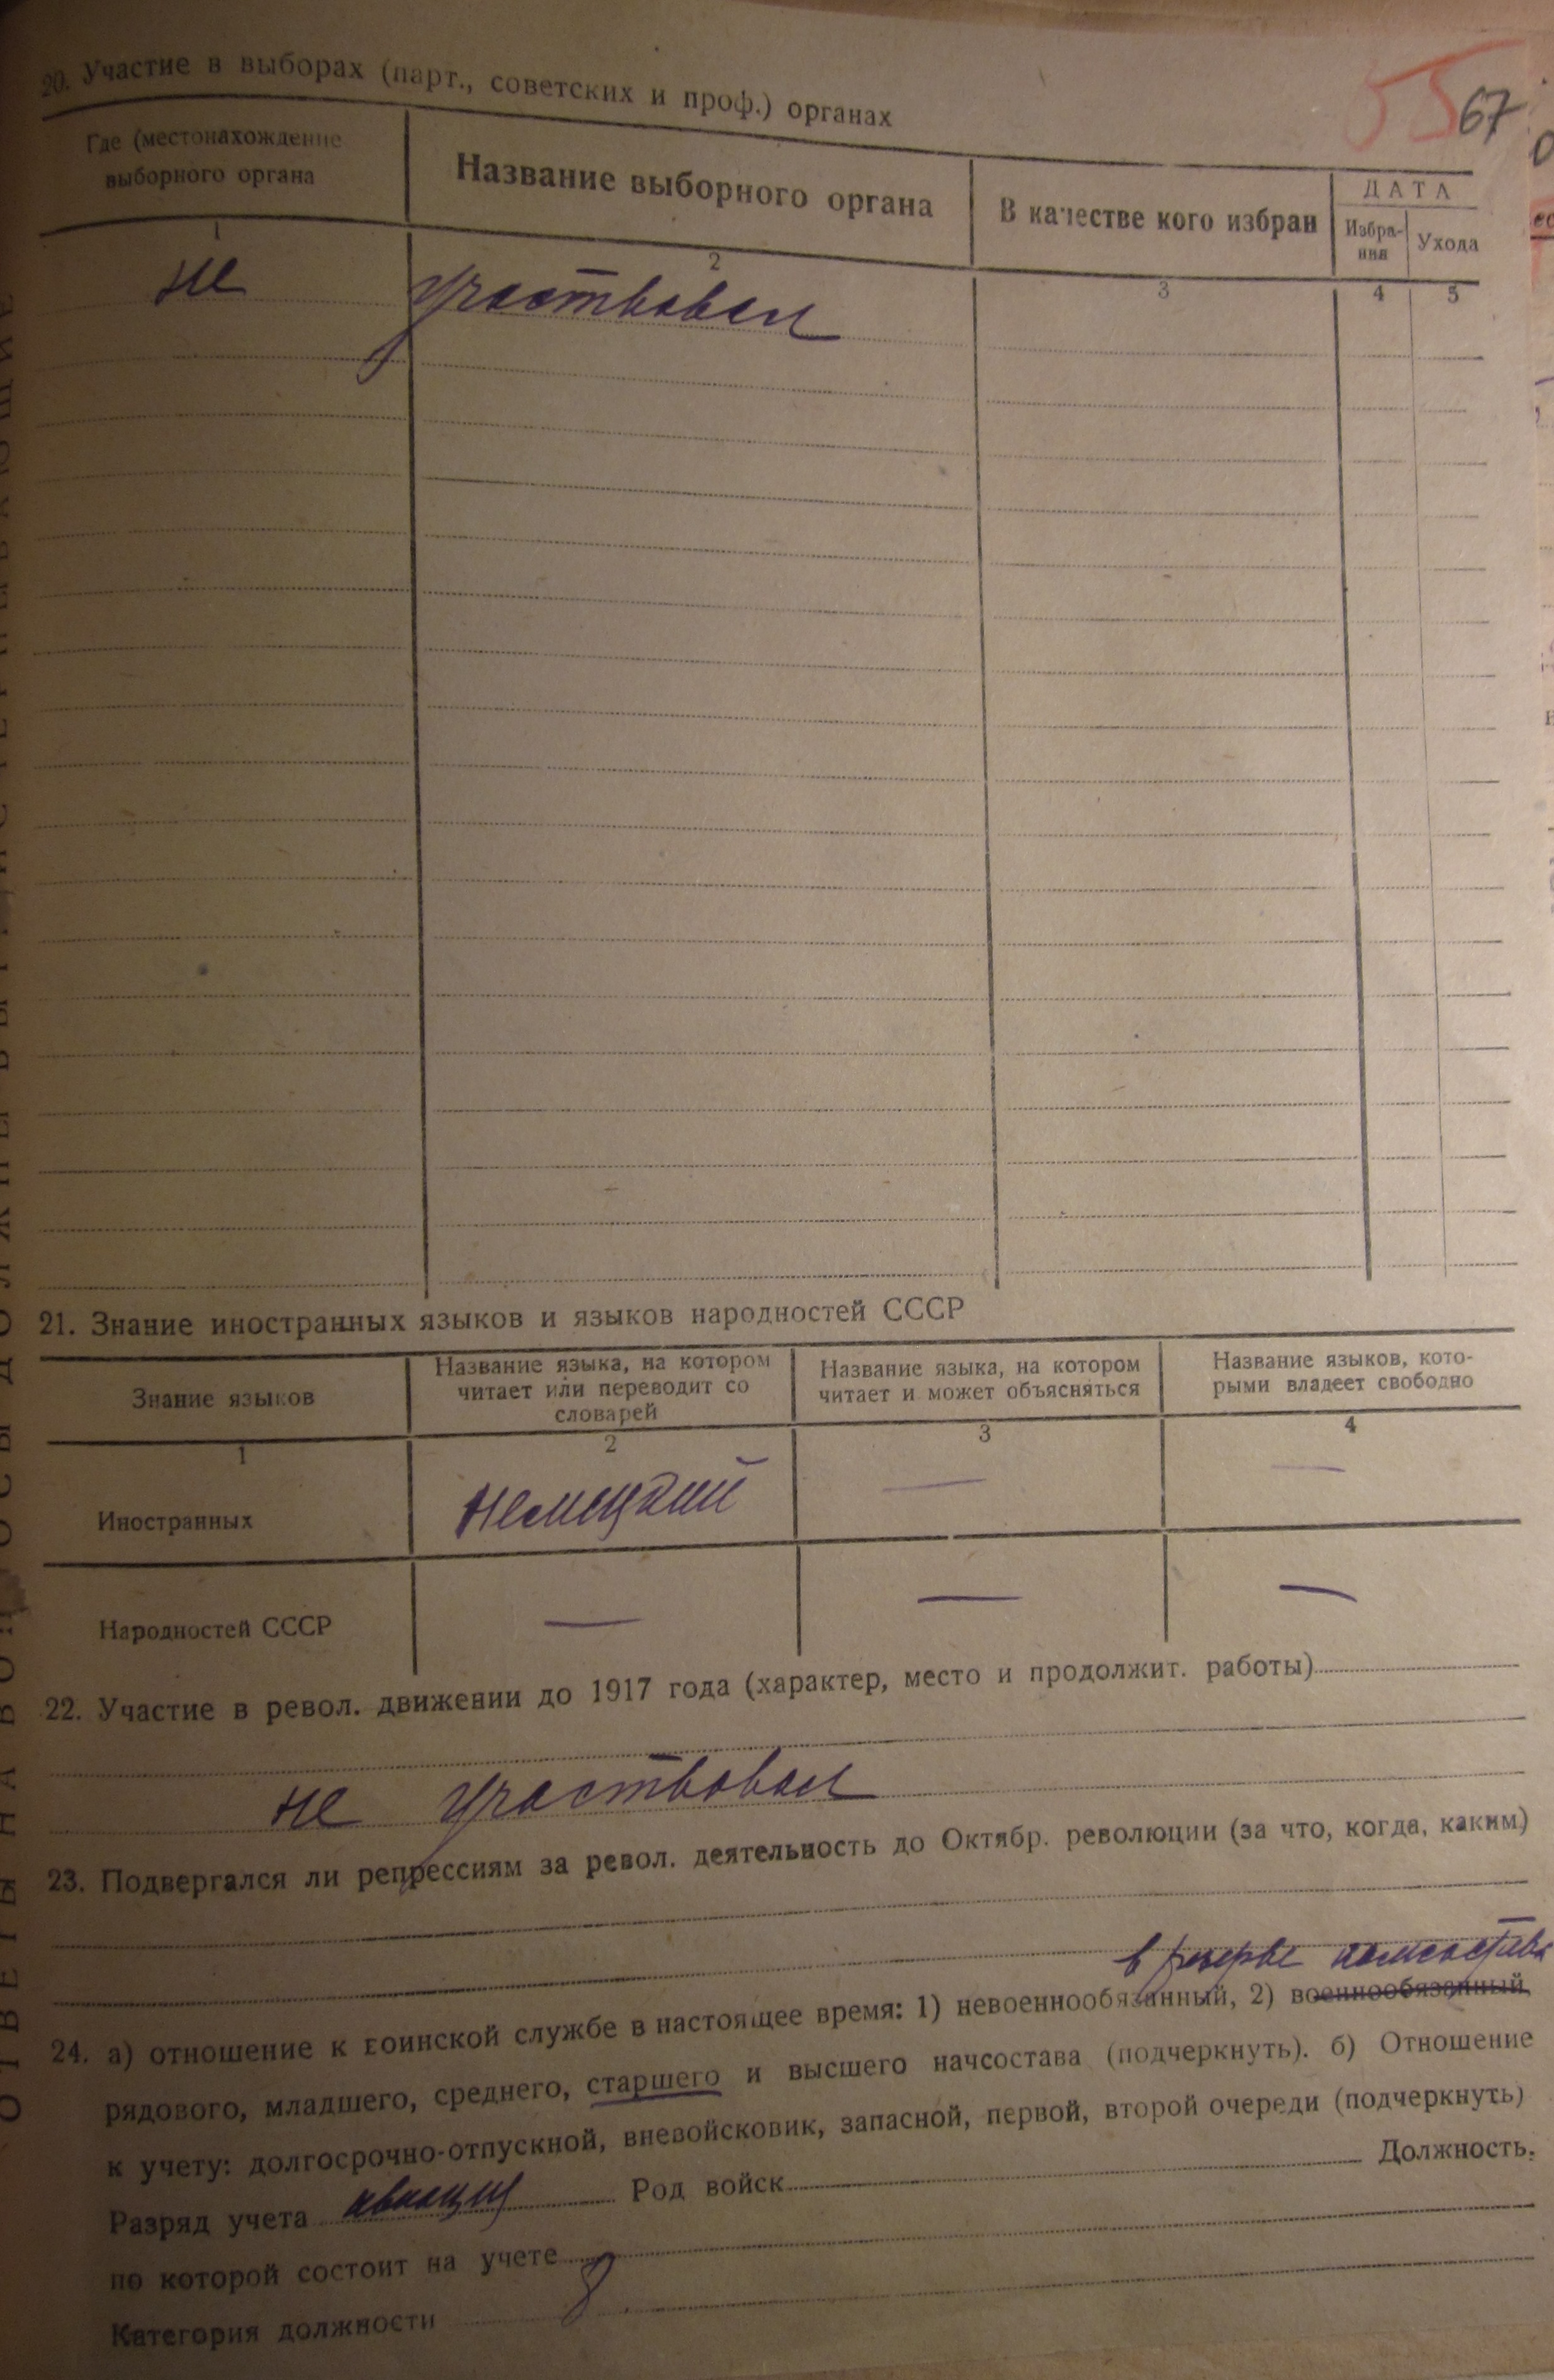 55 67
20. Участие в выборах (парт., советских и проф.) органах
Где (местонахождение выборного органа
Название выборного органа
В качестве кого избран
ДАТА
Избра-
ния
Ухода
1 2 3 4 5
не участвовал
21. Знание иностранных языков и языков народностей СССР
Знание языков
Название языка, на котором
читает или переводит со
словарей
Название языка, на котором
читает и может объясняться
Название языков, кото-
рыми владеет свободно
1 2 3 4
Иностранных немецкий — —
Народностей СССР — — —
22. Участие в револ. движении до 1917 года (характер, место и продолжит. работы)
не участвовал
23. Подвергался ли репрессиям за револ. деятельность до Октябр. революции (за что, когда, каким)
в резерве комсостава
24. а) отношение к воинской службе в настоящее время: 1) невоеннообязанный, 2) военнообязанный
рядового, младшего, среднего, старшего и высшего начсостава (подчеркнуть). б) Отношение
к учету: долгосрочно-отпускной, вневойсковик, запасной, первой, второй очереди (подчеркнуть)
Разряд учета авиация Род войск Должность,
по которой состоит на учете
Категория должности